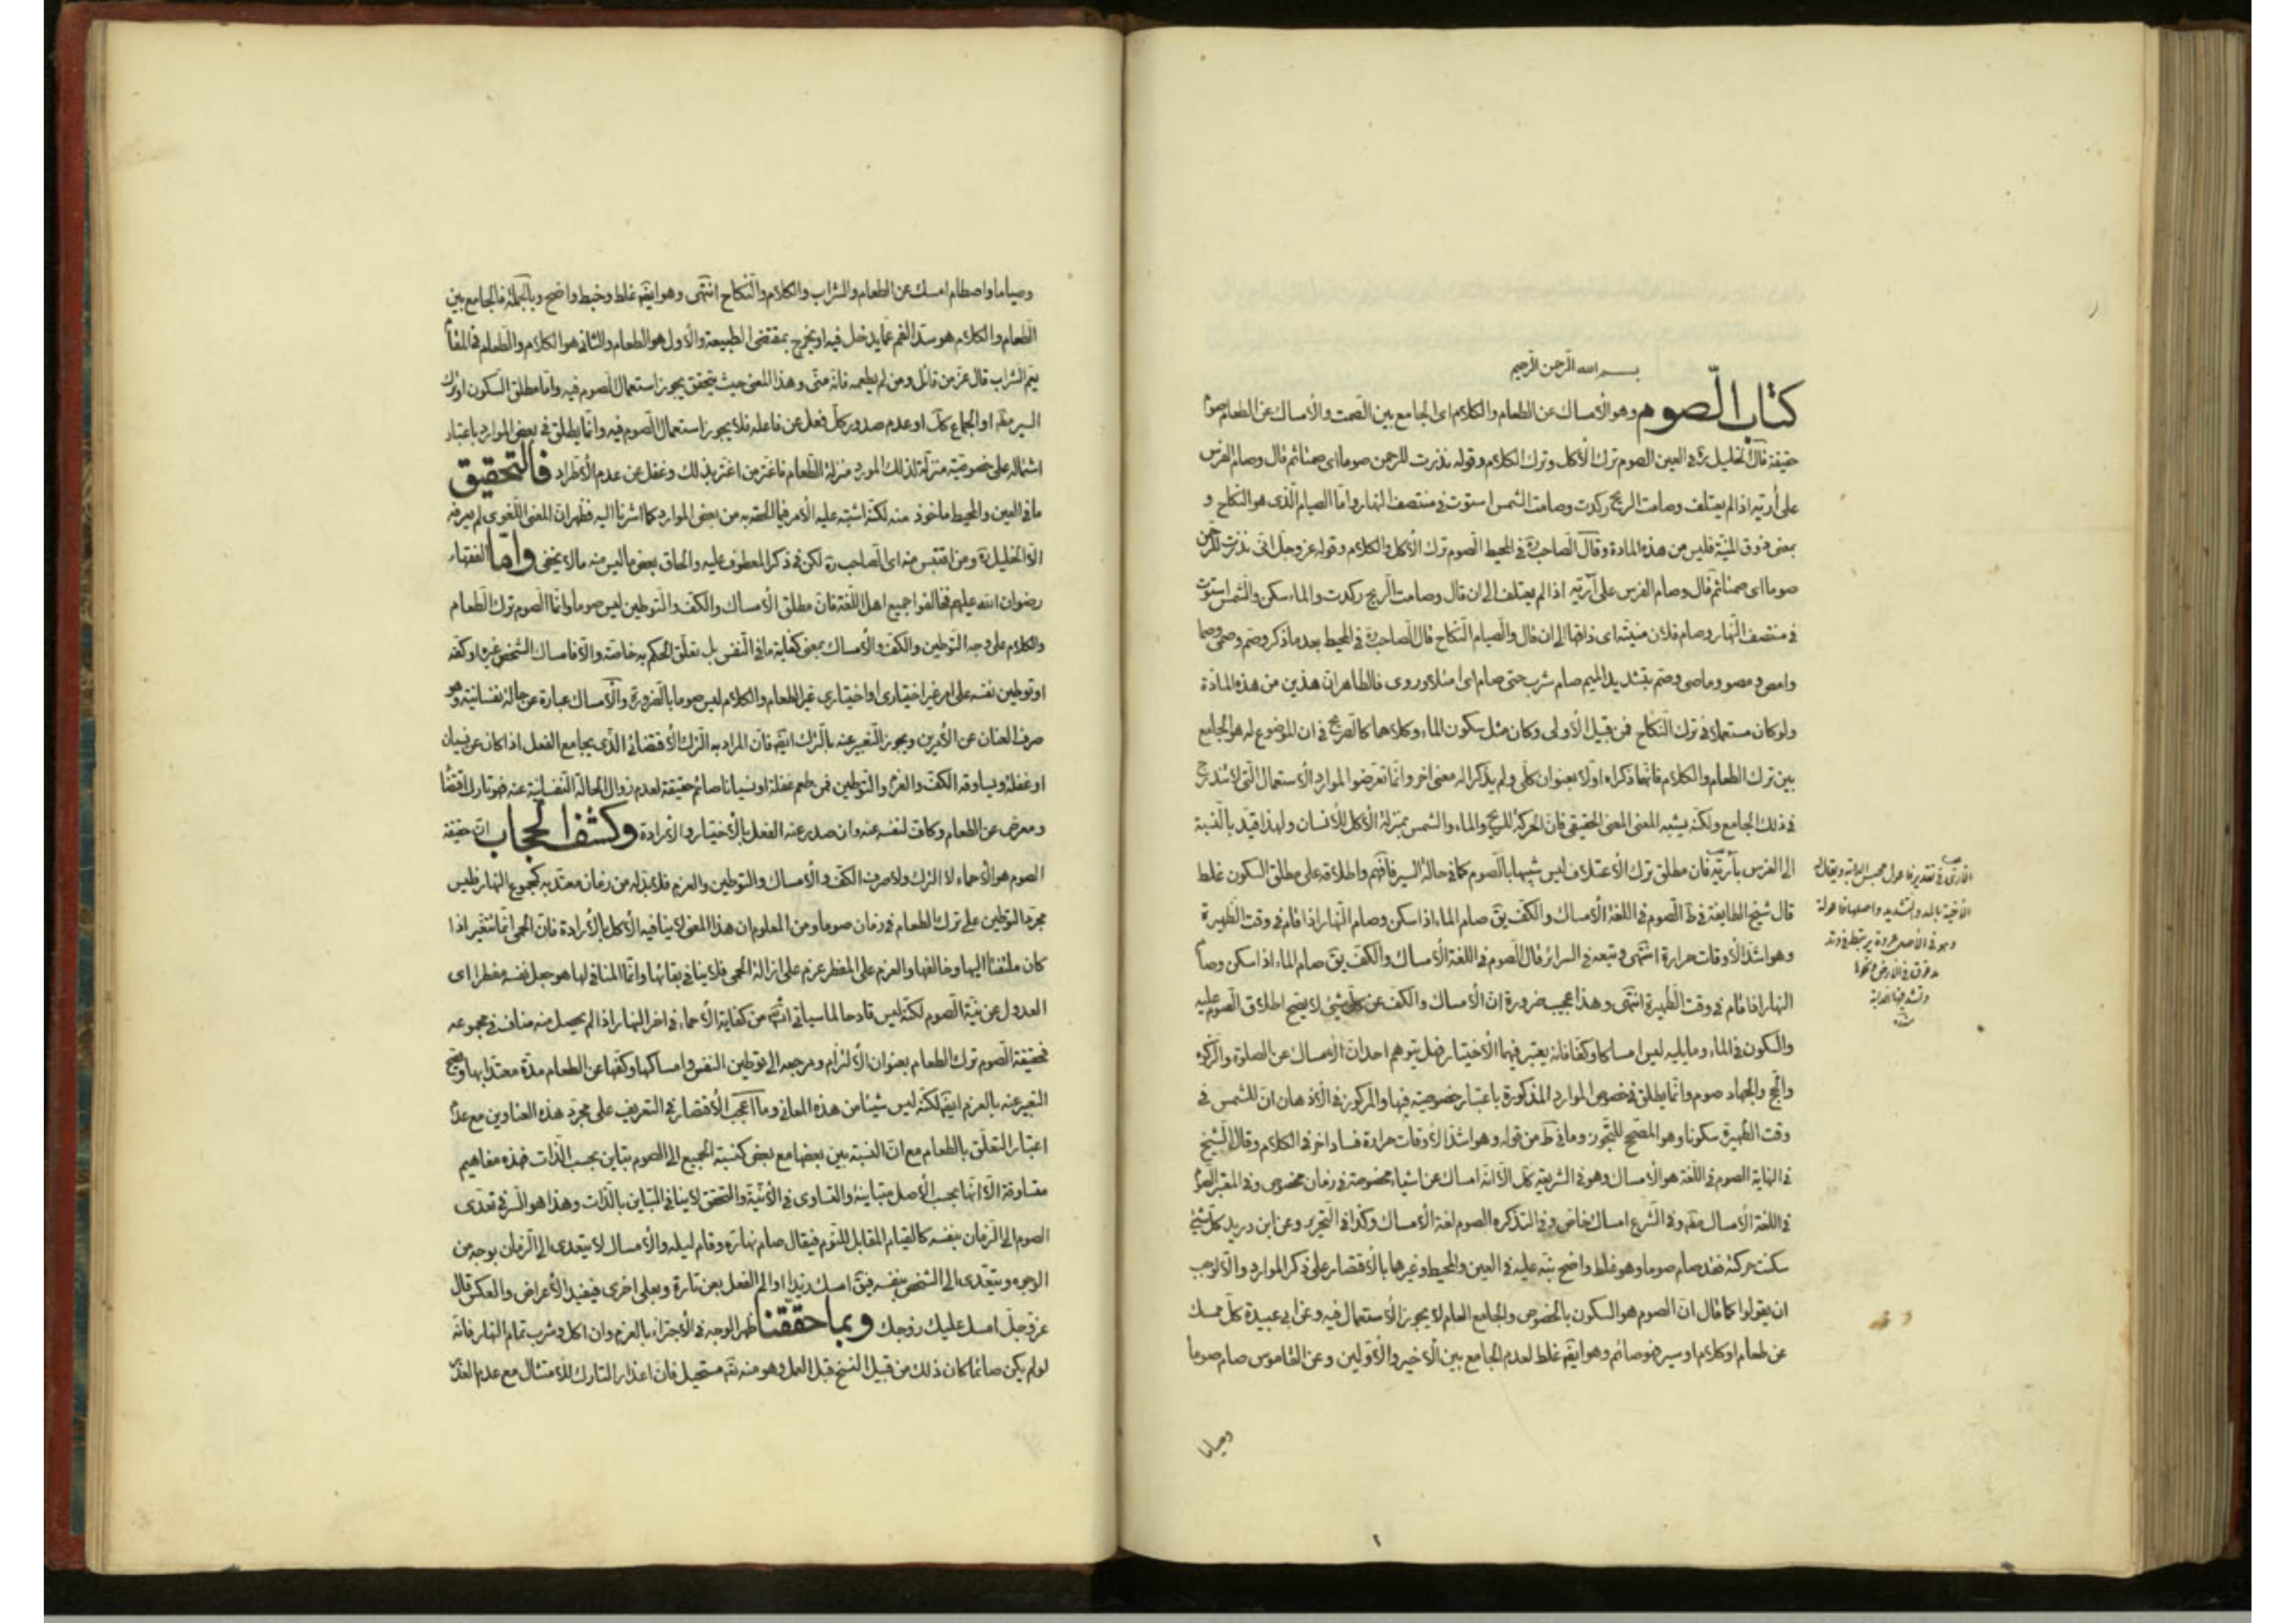 بسم الله الرحمن الرحيم
كتاب الصوم وهو الأمساك عن الطعام والكلام اى الجامع بين الصمت والأمساك عن الطعام صوم
حقيقة قال الخليل ره فى العين الصوم ترك الأكل وترك الكلام وقوله نذرت للرحمن صوما اى صمتا ثم قال وصام الفرس
على أرتيه اذا لم يعتلف وصامت الريح ركدت وصامت الشمس استوت فى منتصف النهار واما الصيام الذى هو النكاح و
بمعنى ذوق المنية فليس من هذه المادة وقال الصاحب ره فى المحيط الصوم ترك الأكل والكلام وقوله عز وجل انى نذرت للرحمن
صوما اى صمتا ثم قال وصام الفرس على آريه اذا لم يعتلف الى ان قال وصامت الريح ركدت والماء سكن والشمس استوت
فى منتصف النهار وصام فلان منيته اى ذاقها الى ان قال والصيام النكاح قال الصاحب ره فى المحيط بعد ما ذكر وصم وصمى وصما
وامص ومصو وماصى وصم بتشديد الميم صام شرب حتى صام اى امتلأ وروى فالظاهر ان هذين من هذه المادة
ولو كان مستعملا فى ترك النكاح فمن قبيل الأولى وكان مثل سكون الماء وكلاهما كالصريح فى ان الموضوع له هو الجامع
بين ترك الطعام والكلام فانهما ذكراه اولا بعنوان كلى ولم يذكرا له معنى اخر وانما تعرضوا لموارد الأستعمال التى لا تندرج
فى ذلك الجامع ولكنه يشبه المعنى المعنى الحقيقى فان الحركة للريح والماء والشمس بمنزلة الأكل للأنسان ولهذا قيد بالنسبة
الى الفرس بآريه فان مطلق ترك الأعتلاف ليس شبيها بالصوم كما فى حالة السير فافهم واطلاقه على مطلق السكون غلط
قال شيخ الطايفة فى ط الصوم فى اللغة الأمساك والكف يق صام الماء اذا سكن وصام النهار اذا قام فى وقت الظهيرة
وهو اشد الأوقات حرارة انتهى وتبعه فى السرائر قال الصوم فى اللغة الأمساك والكف يق صام الماء اذا سكن وصام
النهار اذا قام فى وقت الظهيرة انتهى وهذا عجيب ضرورة ان الأمساك والكف عن كل شئ لا يصح اطلاق الصوم عليه
والسكون فى الماء وما يليه ليس امساكا وكفا فانه يعتبر فيهما الأختيار فهل يتوهم احد ان الأمساك عن الصلوة والزكوة
والحج والجهاد صوم وانما يطلق فى خصوص الموارد المذكورة باعتبار خصوصية فيها والمركوز فى الأذهان ان للشمس فى
وقت الظهيرة سكونا وهو المصحح للتجوز وما فى ط من قوله وهو اشد الأوقات حرارة فساد اخر فى الكلام وقال الشيخ
فى النهاية الصوم فى اللغة هو الأمساك وهو فى الشريعة كل الا انه امساك عن اشياء مخصوصة فى زمان مخصوص وفى المعتبر الصوم
فى اللغة الأمساك مقه وفى الشرع امساك خاص وفى التذكره الصوم لغة الأمساك وكذا فى التحرير وعن ابن دريد كل شئ
سكنت حركته فقد صام صوما وهو غلط واضح نبه عليه فى العين والمحيط وغيرها بالأقتصار على ذكر الموارد والا لوجب
ان يقولوا كما قال ان الصوم هو السكون بالخصوص والجامع العام لا يجوز الأستعمال فيه وعن ابى عبيدة كل ممسك
عن طعام او كلام او سير فهو صائم وهو ايضه غلط لعدم الجامع بين الأخير والأولين وعن القاموس صام صوما
وصياما
الأخية بالمد والتشديد واصلها فاعولة
وهو فى الأصل عروة يرتبط فى وتد
مدقوق فى الأرض
وتشد فيها الدابة
منه
وصياما واصطام امسك عن الطعام والشراب والكلام والنكاح انتهى وهو ايضه غلط وخبط واضح وبالجملة فالجامع بين
الطعام والكلام هو سد الفم عما يدخل فيه او يخرج بمقتضى الطبيعة والأول هو الطعام والثانى هو الكلام والطعام فى المقام
يعم الشراب قال عز من قائل ومن لم يطعمه فانه منى وهذا المعنى حيث يتحقق يجوز استعمال الصوم فيه واما مطلق السكون او ترك
السير مقه او الجماع كل او عدم صدور كل فعل عن فاعله فلا يجوز استعمال الصوم فيه وانما يطلق فى بعض الموارد باعتبار
اشتماله على خصوصية منزلة لذلك المورد منزلة الطعام فاغتر من اغتر بذلك وغفل عن عدم الأطراد فالتحقيق
ما فى العين والمحيط ماخوذ منه لكنه اشتبه عليه الأمر فيما الحقه به من بعض الموارد كما اشرنا اليه فظهر ان المعنى اللغوى لم يعرفه
الا الخليل ره ومن اقتبس منه اى الصاحب ره لكن فى ذكر المعطوف عليه والحاق بعض ما ليس منه ما لا يخفى واما الفقهاء
رضوان الله عليهم فخالفوا جميع اهل اللغة فان مطلق الأمساك والكف والتوطين ليس صوما وانما الصوم ترك الطعام
والكلام على وجه التوطين والكف والأمساك بمعنى كفاية ما فى النفس بل تعلق الحكم به خاصة والا فامساك الشخص غيره او كفه
او توطين نفسه على امر غير اختيارى او اختيارى غير الطعام والكلام ليس صوما بالضرورة والأمساك عبارة عن حالة نفسانية وهو
صرف العنان عن الأمرين ويجوز التعبير عنه بالترك ايضه فان المراد به الترك الأقتضائى الذى يجامع الفعل اذا كان عن نسيان
او غفلة ويساوقه الكف والعزم والتوطين فمن طعم غفلة او نسيانا صائم حقيقة لعدم زوال الحالة النفسانية عنه فهو تارك اقتضاء
ومعرض عن الطعام وكاف لنفسه عنه وان صدر عنه الفعل بالأختيار والأرادة وكشف الحجاب ان حقيقة
الصوم هو الأحماء لا الترك ولا صرف الكف والأمساك والتوطين والعزم فلا بد له من زمان معتد به كمجموع النهار فليس
مجرد التوطين على ترك الطعام فى زمان صوما ومن المعلوم ان هذا المعنى لا ينافيه الأكل بالأرادة فان الحمى انما تتغير اذا
كان ملتفتا اليها وخالفها والعزم على المفطر عزم على ازالة الحمى فلا ينافى بقائها وانما المنافى لها هو جعل نفسه مفطرا اى
العدول عن نية الصوم لكنه ليس قادحا لما سياتى انش من كفاية الأحماء فى اخر النهار اذا لم يحصل منه مناف فى مجموعه
فحقيقة الصوم ترك الطعام بعنوان الألتزام ومرجعه الى توطين النفس وامساكها وكفها عن الطعام مدة معتدا بها ويصح
التعبير عنه بالعزم ايضه لكنه ليس شيئا من هذه المعانى وما اعجب الأقتصار فى التعريف على مجرد هذه العناوين مع عدم
اعتبار التعلق بالطعام مع ان النسبة بين بعضها مع بعض كنسبة الجميع الى الصوم تباين بحسب الذات فهذه مفاهيم
متساوقة الا انها بحسب الأصل متباينة والتساوى فى الأنية والتحقق لا ينافى التباين بالذات وهذا هو السر فى تعدى
الصوم الى الزمان بنفسه كالقيام المقابل للنوم فيقال صام نهاره وقام ليله والأمساك لا يتعدى الى الزمان بوجه من
الوجوه ويتعدى الى الشخص بنفسه فيق امسك زيدا او الى الفعل بعن تارة وبعلى اخرى فيفيد الأعراض والعكس قال
عز وجل امسك عليك زوجك وبما حققنا ظهر الوجه فى الأجتزاء بالعزم وان اكل وشرب تمام النهار فانه
لو لم يكن صائما كان ذلك من قبيل النسخ قبل العمل وهو منه تقه مستحيل فان اعذار التارك للأمتثال مع عدم العذر